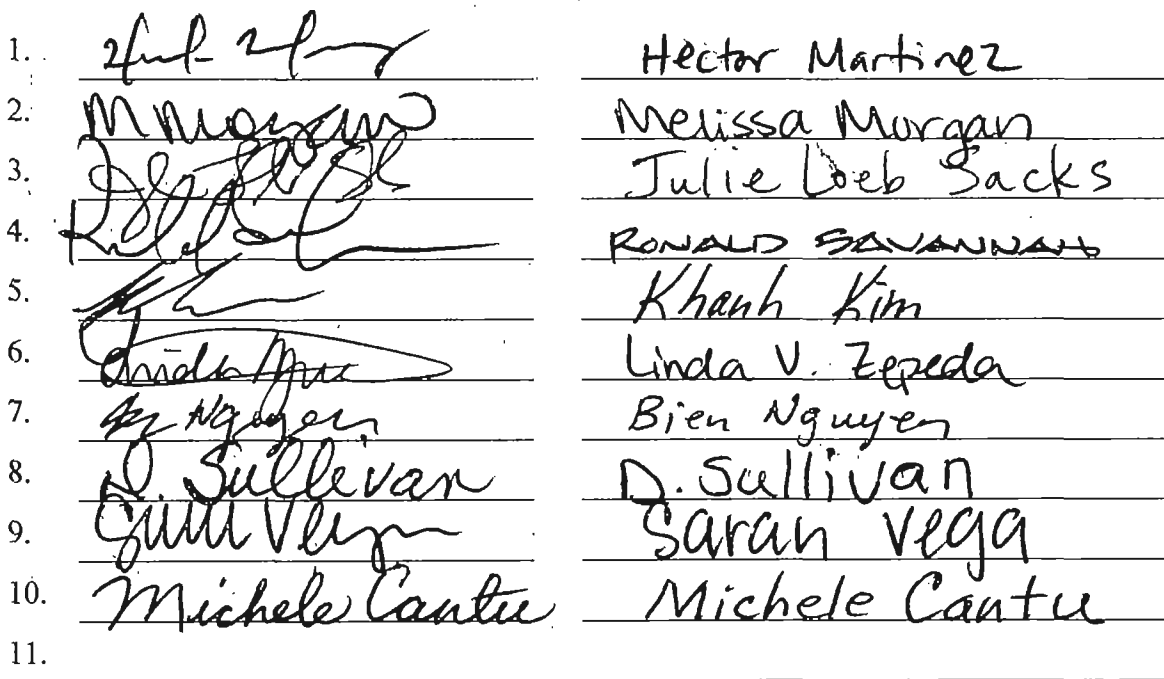 1. Hector Martinez
2. M Morgan Melissa Morgan
3. Julie Loeb Sacks
4. RONALD SAVANNAH
5. Khanh Kim
6. Linda V. Zepeda
7. Nguyen Bien Nguyen
8. D. Sullivan D. Sullivan
9. Sarah Vega
10. Michele Cantu Michele Cantu
11.